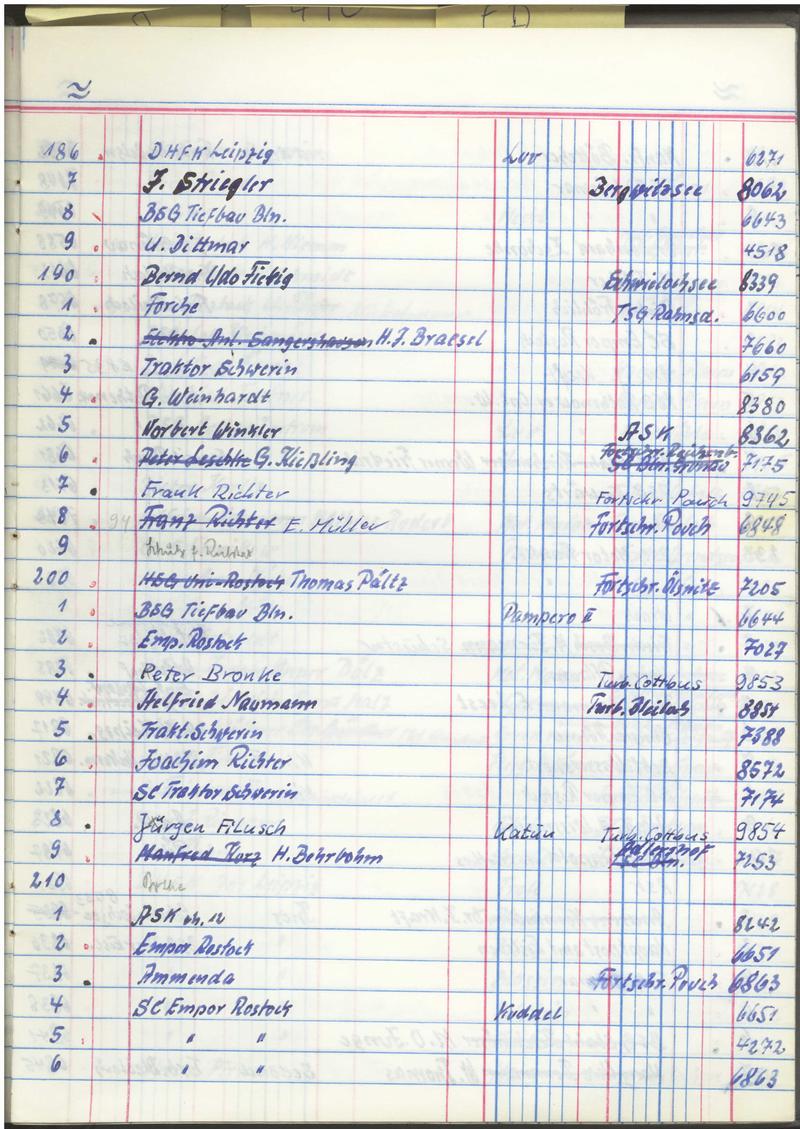 ≈
186 . DHFK Leipzig Luv 6271
7 J. Striegler Bergwitzsee 8062
8 BSG Tiefbau Bln. 6643
9 . U. Dittmar 4518
190 . Bernd Udo Fietig Schwielochsee 8339
1 . Forche TSG Rahnsd. 6600
2 . Elektro Anl. Sangershausen H.J. Braesel 7660
3 . Traktor Schwerin 6159
4 . G. Weinhardt 8380
5 Norbert Winkler ASK 8362
6 . Peter Leschke G. Kießling 7175
7 . Frank Richter Fortschr Pouch 9745
8 . 94 Franz Richter E. Müller Fortschr. Pouch 6848
9 f. Richter
200 . HSG Uni-Rostock Thomas Pältz Fortschr. Ölsnitz 7205
1 . BSG Tiefbau Bln. Pampero II 6644
2 . Emp. Rostock 7027
3 . Peter Bronke Turb. Cottbus 9853
4 . Helfried Naumann Turb. Bleiloch 8851
5 . Trakt. Schwerin 7388
6 . Joachim Richter 8572
7 SC Traktor Schwerin 7174
8 . Jürgen Filusch Katün Turb. Cottbus 9854
9 . Manfred Korz H. Behrbohm Adlershof TSC Bln. 7253
210
1 . ASK 8242
2 . Empor Rostock 6651
3 . Ammenda Fortschr. Pouch 6863
4 . SC Empor Rostock Kuddel 6651
5 . " " 4272
6 . " " 6863